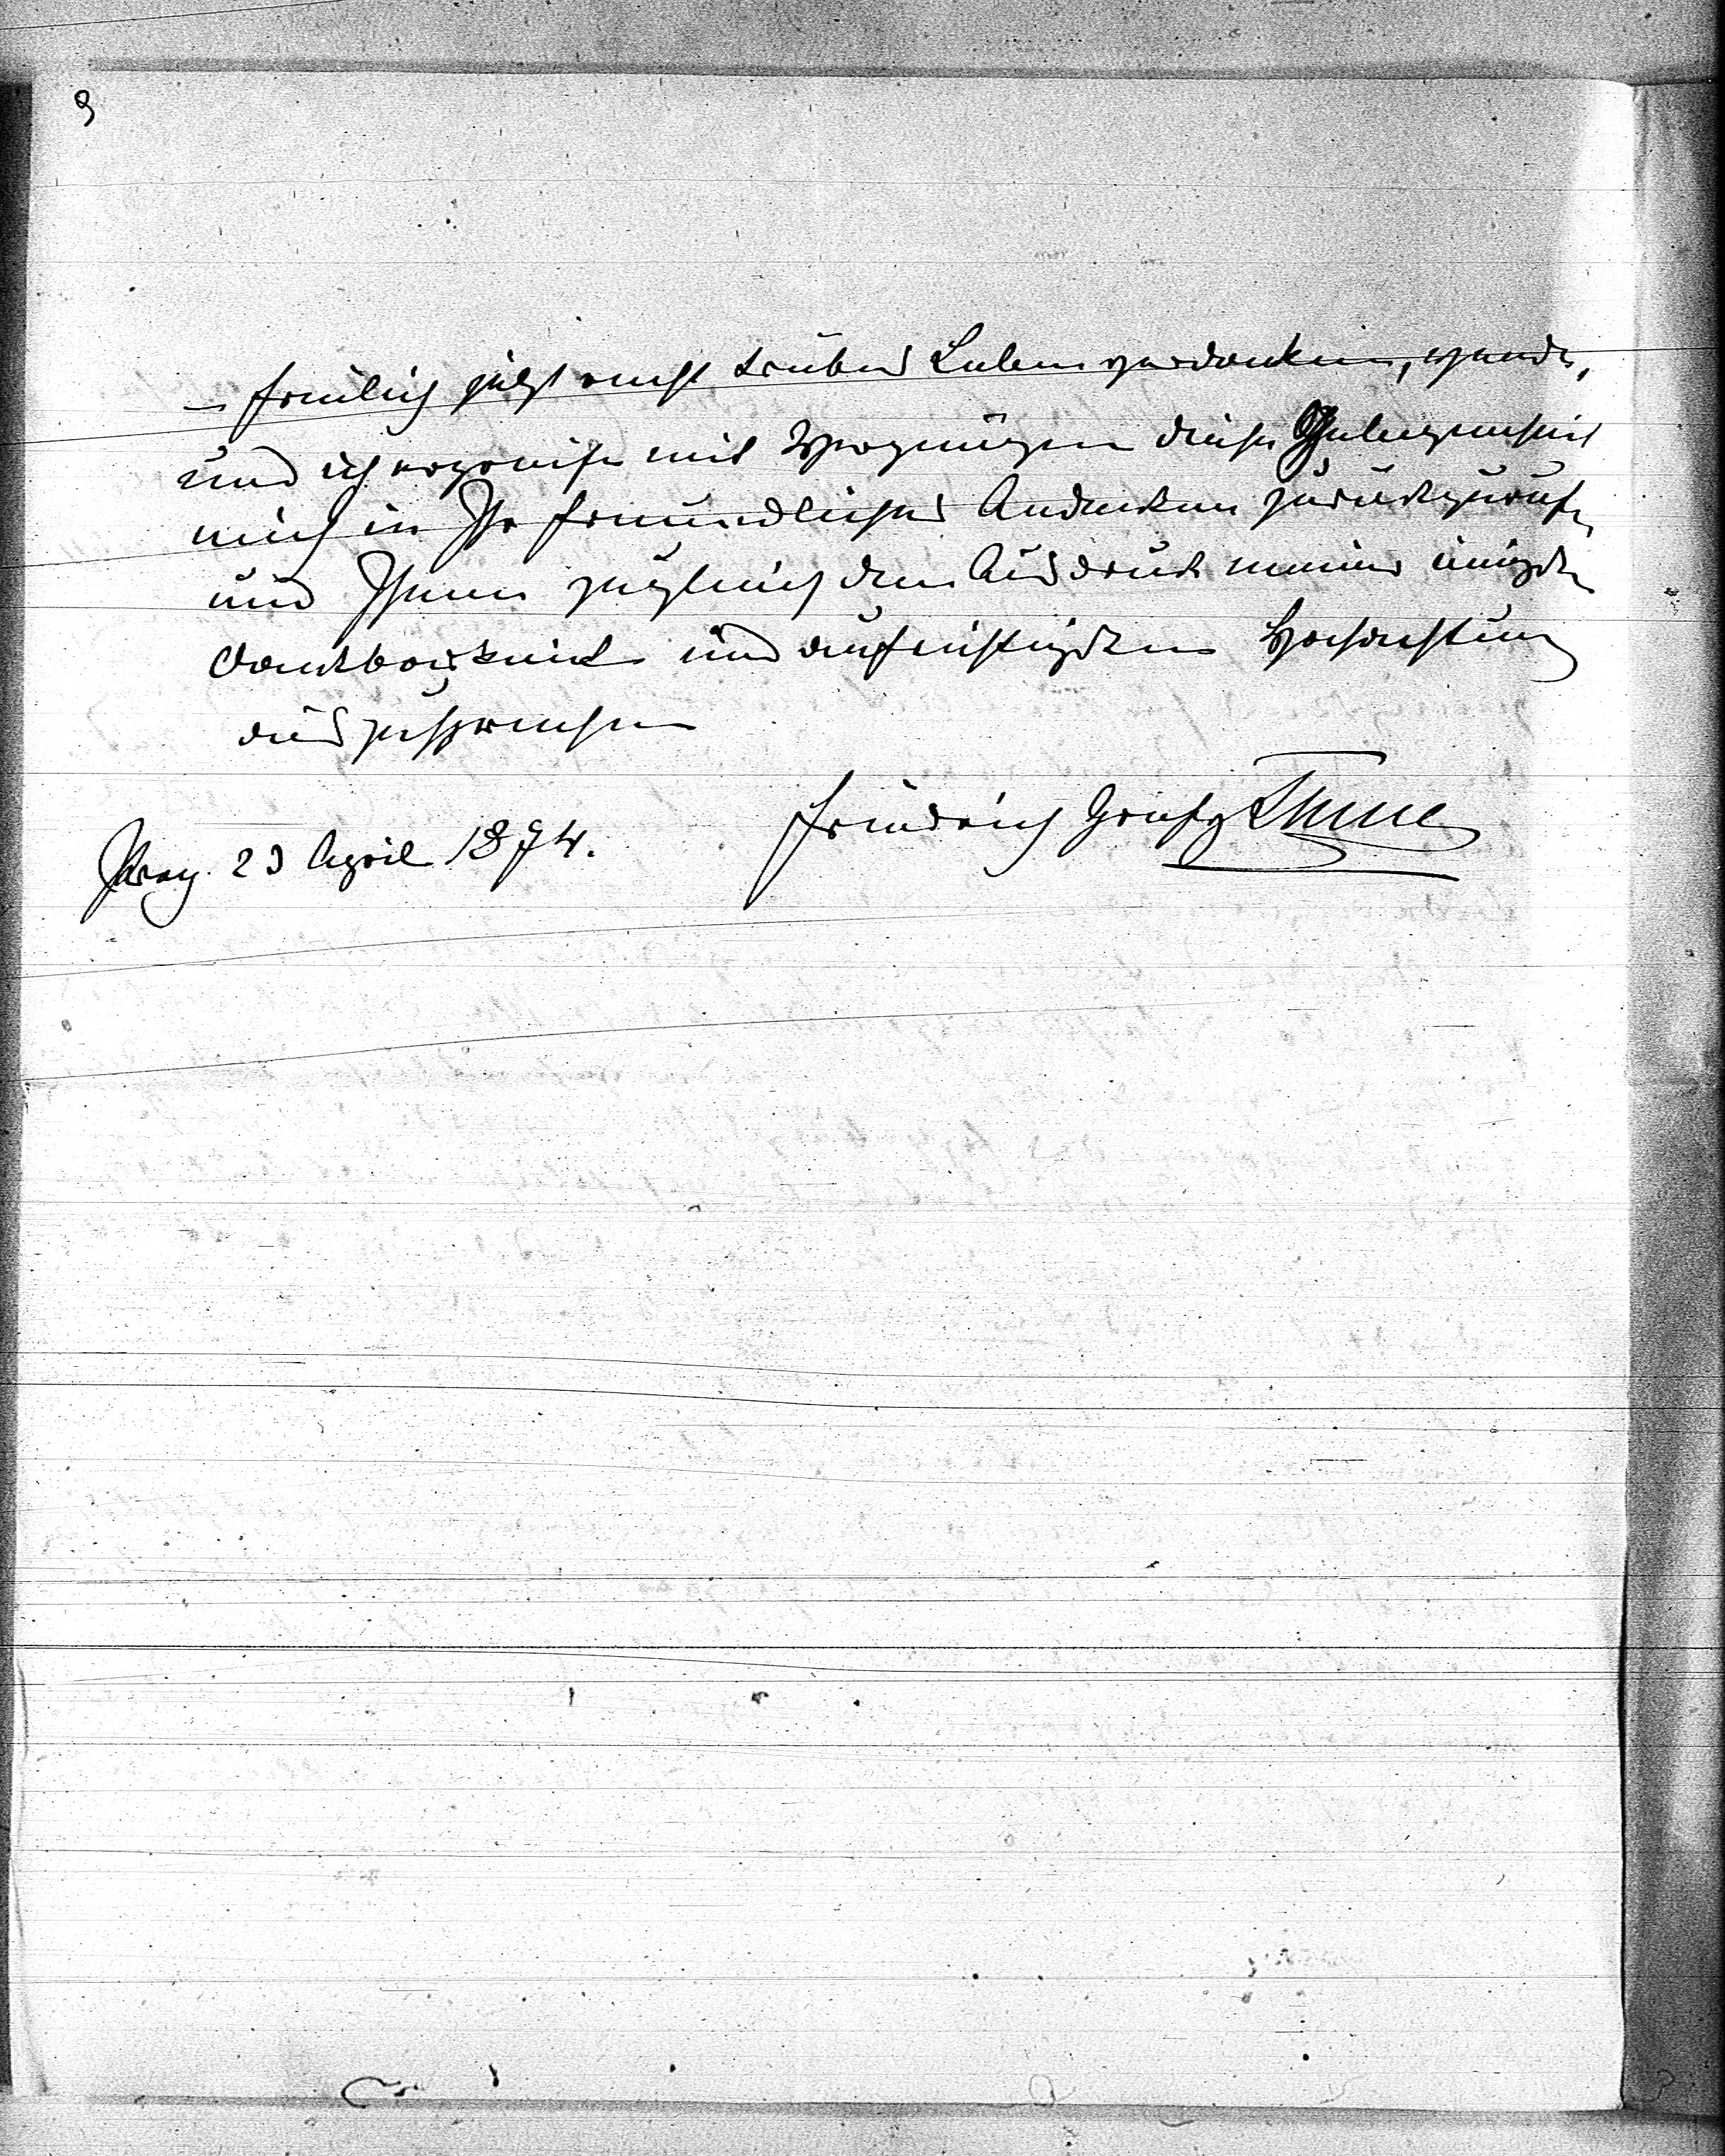 9
– freilich jetzt recht trübes Leben verdanken, wende,
und ich ergreife mit Vergnügen diese Gelegenheit
mich in Ihr freundliches Andenken zurückzurufen
und Ihnen zugleich den Ausdruck meiner innigsten
Dankbarkeit und aufrichtigsten Hochachtung
auszusprechen
Friedrich Graf Thun
Prag 23 April 1874.